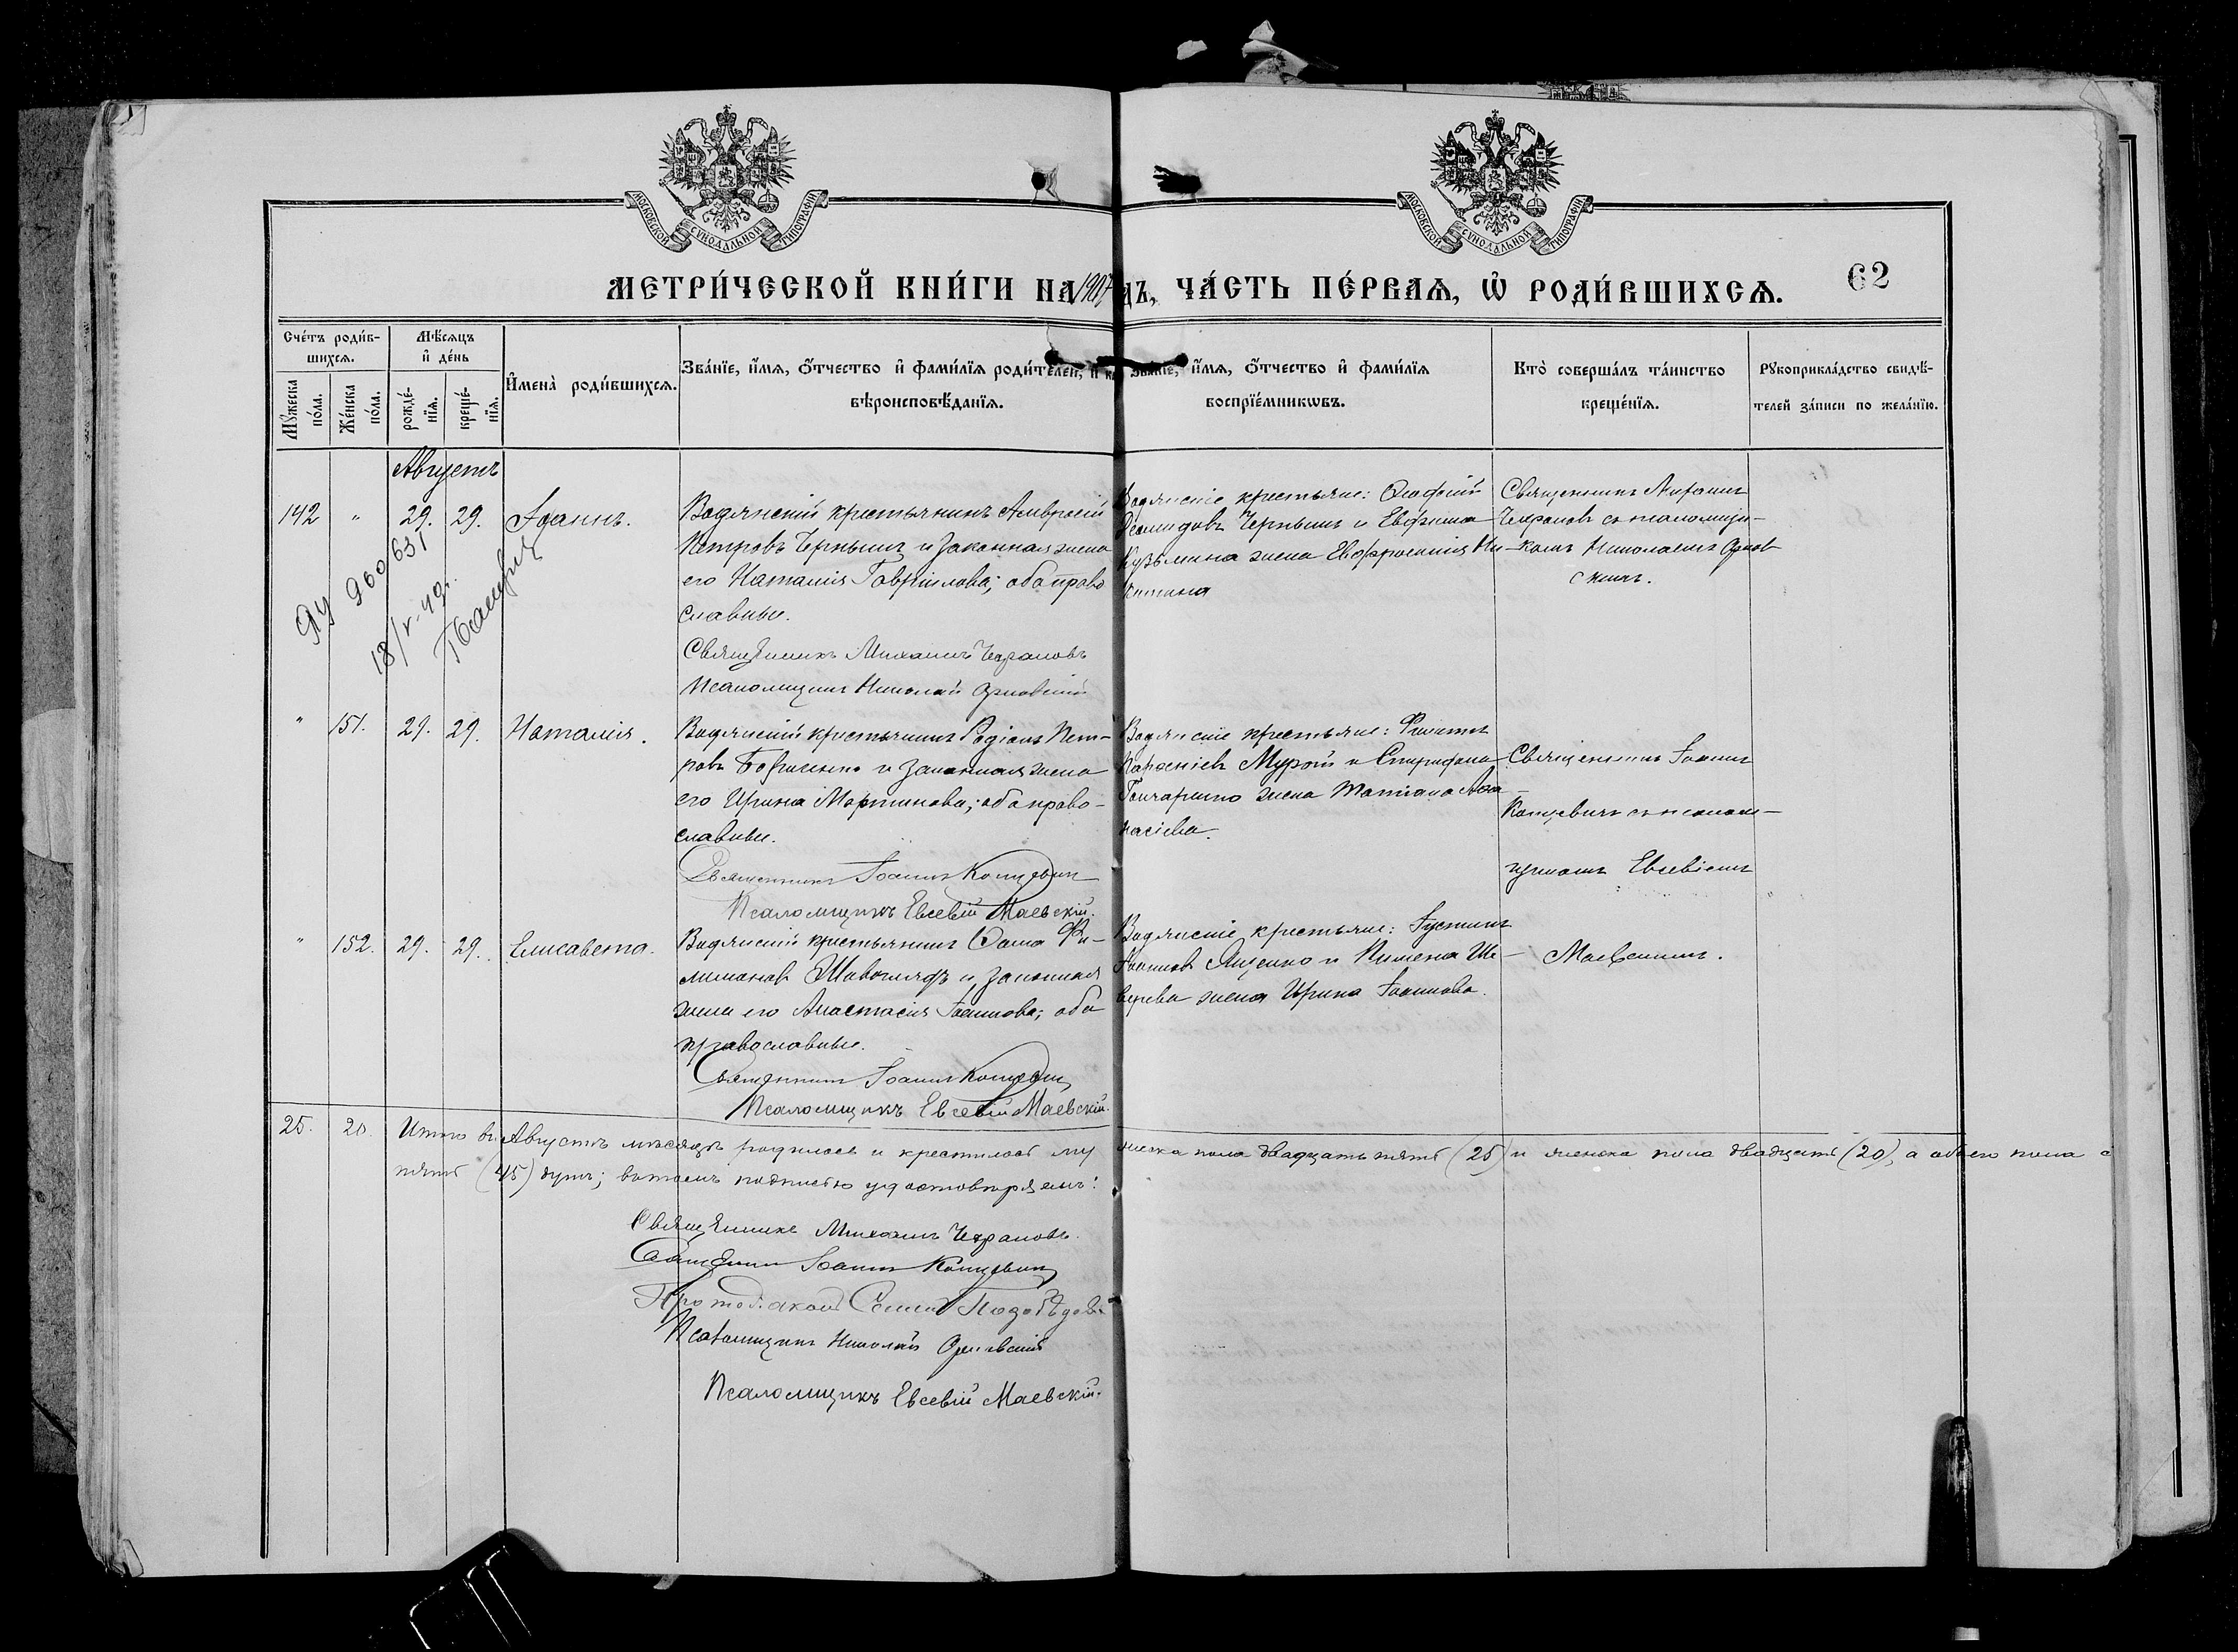 МОСКОВСКОЙ СУНОДАЛЬНОЙ ТИПОГРАФІИ
МОСКОВСКОЙ СУНОДАЛЬНОЙ ТИПОГРАФІИ
МЕТРИ́ЧЕСКОЙ КНИ́ГИ НА 1907 ДЪ, ЧА́СТЬ ПЕ́РВАѦ, Ѡ РОДИ́ВШИХСѦ.
62
Сче́тъ роди́в-
шихсѧ.
Мꙋ́жеска по́ла.
Же́нска по́ла.
Мѣ́сѧцъ
и҆ де́нь
рожде́-
нїѧ.
креще́-
нїѧ.
И҆мена̀ роди́вшихсѧ.
Зва́нїе, и҆́мѧ, ѻ҆́тчество и҆ фами́лїѧ роди́телей, и҆
вѣроисповѣ́данїѧ.
Зва́нїе, и҆́мѧ, ѻ҆́тчество и҆ фами́лїѧ
воспрїе́мникѡвъ.
Кто̀ соверша́лъ та́инство
креще́нїѧ.
Рꙋкоприкла́дство свидѣ́-
телей за́писи по жела́нїю.
Августъ
142 " 29. 29. Іоаннъ.
Водянскій крестьянинъ Амвросій
Петровъ Чернышъ и законная жена
его Наталія Гавріилова; оба право
славные.
Священникъ Михаилъ Чефрановъ
Псаломщикъ Николай Орловскій
Водянскіе крестьяне:
Демидовъ Чернышъ и
Кузьмина жена Евфросинія Ни-
китина
Священникъ Михаилъ
Чефрановъ съ псаломщи-
комъ Николаемъ Орлов
скимъ.
ЯУ 960631
18/V-49г.
" 151. 29. 29. Наталія.
Водянскій крестьянинъ Родіонъ Пет-
ровъ и законная жена
его Ирина Мартинова; оба право-
славные.
Священникъ Іоаннъ Концевичъ
Псаломщикъ Евсевій Маевскій.
Водянскіе крестьяне:
и Спиридона
Гончаренко жена Татіана Афа-
насіева.
Священникъ Іоаннъ
Концевичъ съ псалом-
щикомъ Евсевіемъ
Маевскимъ.
" 152. 29. 29. Елисавета.
Водянскій крестьянинъ Фома Фи-
лимоновъ и законная
жена его Анастасія Іоаннова; оба
православные.
Священникъ Іоаннъ Концевичъ
Псаломщикъ Евсевій Маевскій.
Водянскіе крестьяне: Іустинъ
Іоанновъ Яценко и Пимена Ше-
верева жена Ирина Іоаннова.
25. 20. Итого въ Августѣ мѣсяцѣ родилось и крестилось му жеска пола двадцать пять (25) и женска пола двадцать (20), а обоего пола с
пять (45) душъ; въ томъ подписью удостовѣряемъ:
Священникъ Михаилъ Чефрановъ.
Священникъ Іоаннъ Концевичъ
Протодіаконъ
Псаломщикъ Николай Орловскій
Псаломщикъ Евсевій Маевскій.